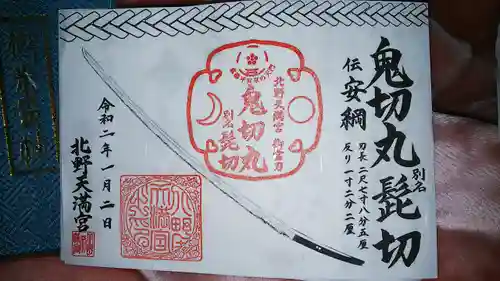 鬼切丸 別名 髭切
伝 安綱
刃長 二尺七寸八分五厘
反り 一寸二分二厘
北野天満宮 御宮刀
鬼切丸
別名 髭切
令和二年一月二日
北野天満宮